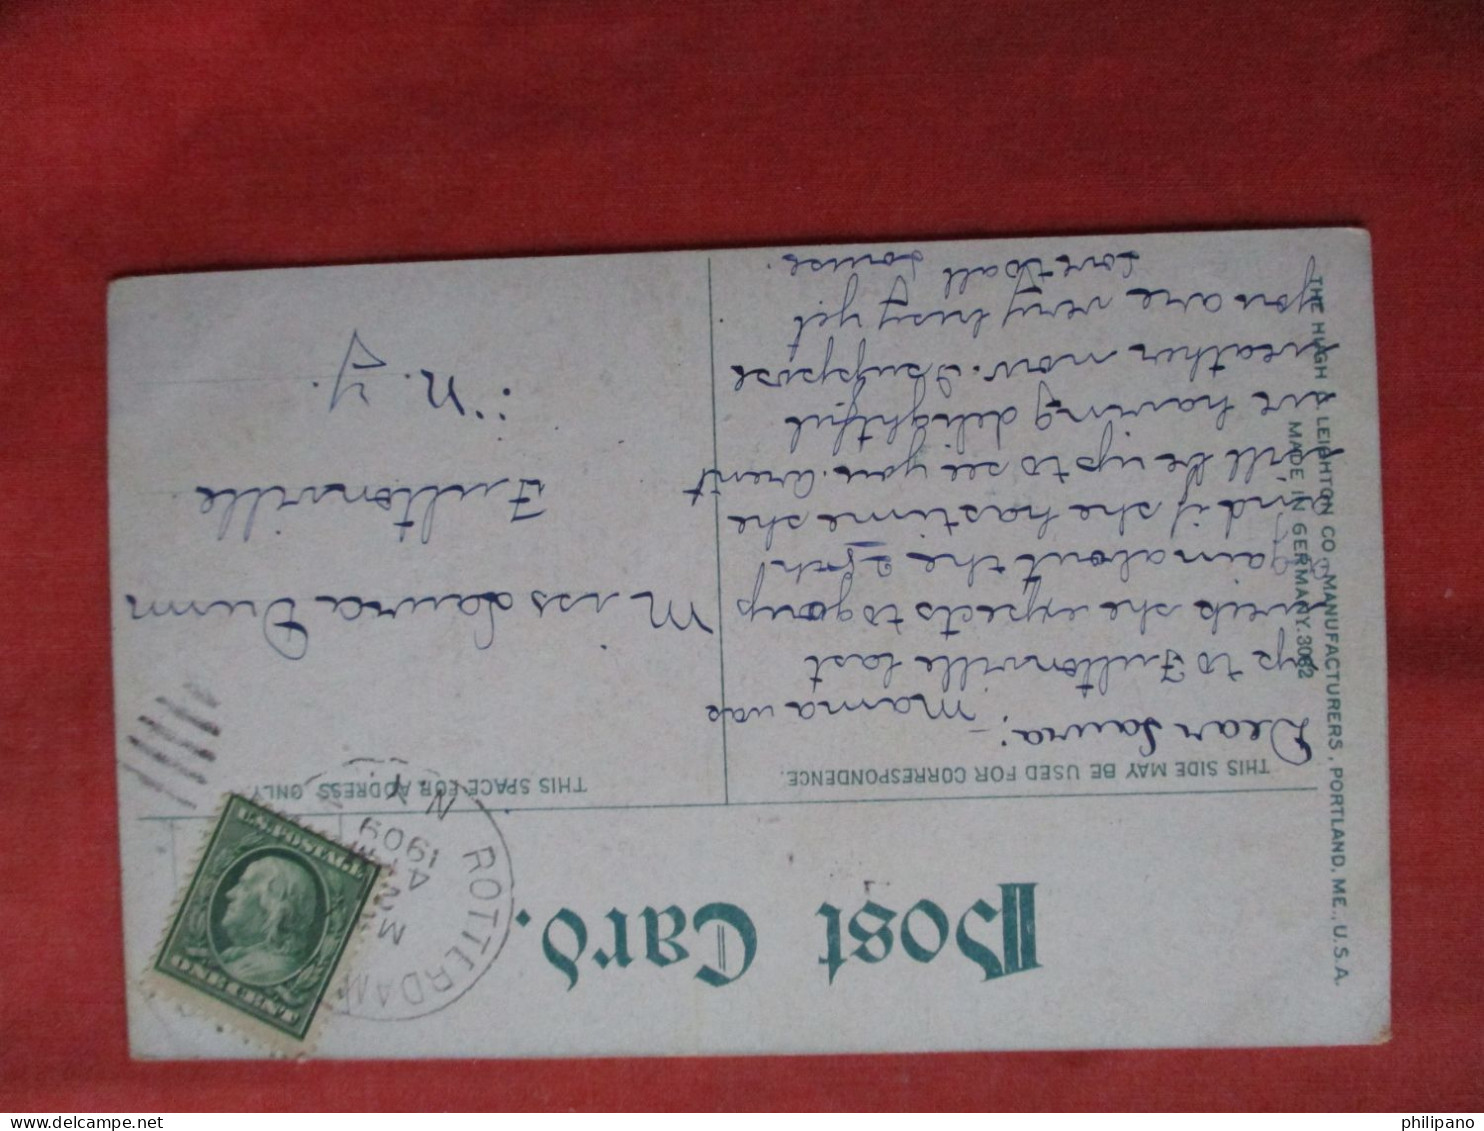 Post Card.
THIS SIDE MAY BE USED FOR CORRESPONDENCE.
THIS SPACE FOR ADDRESS ONLY.
THE HUGH C. LEIGHTON CO., MANUFACTURERS, PORTLAND, ME., U.S.A.
MADE IN GERMANY. 3062
ROTTERDAM
N.Y.
1909
U.S. POSTAGE
ONE CENT
Dear Laura:-
Mama was
up to Fultonville last
week she expects to go up
again about the 25th
and if she has time she
will be up to see you. Arent
we having delightful
weather now. I suppose
you are very busy yet
Love to all
Louise.
Miss Laura Dunn
Fultonville
N.Y.
philipano